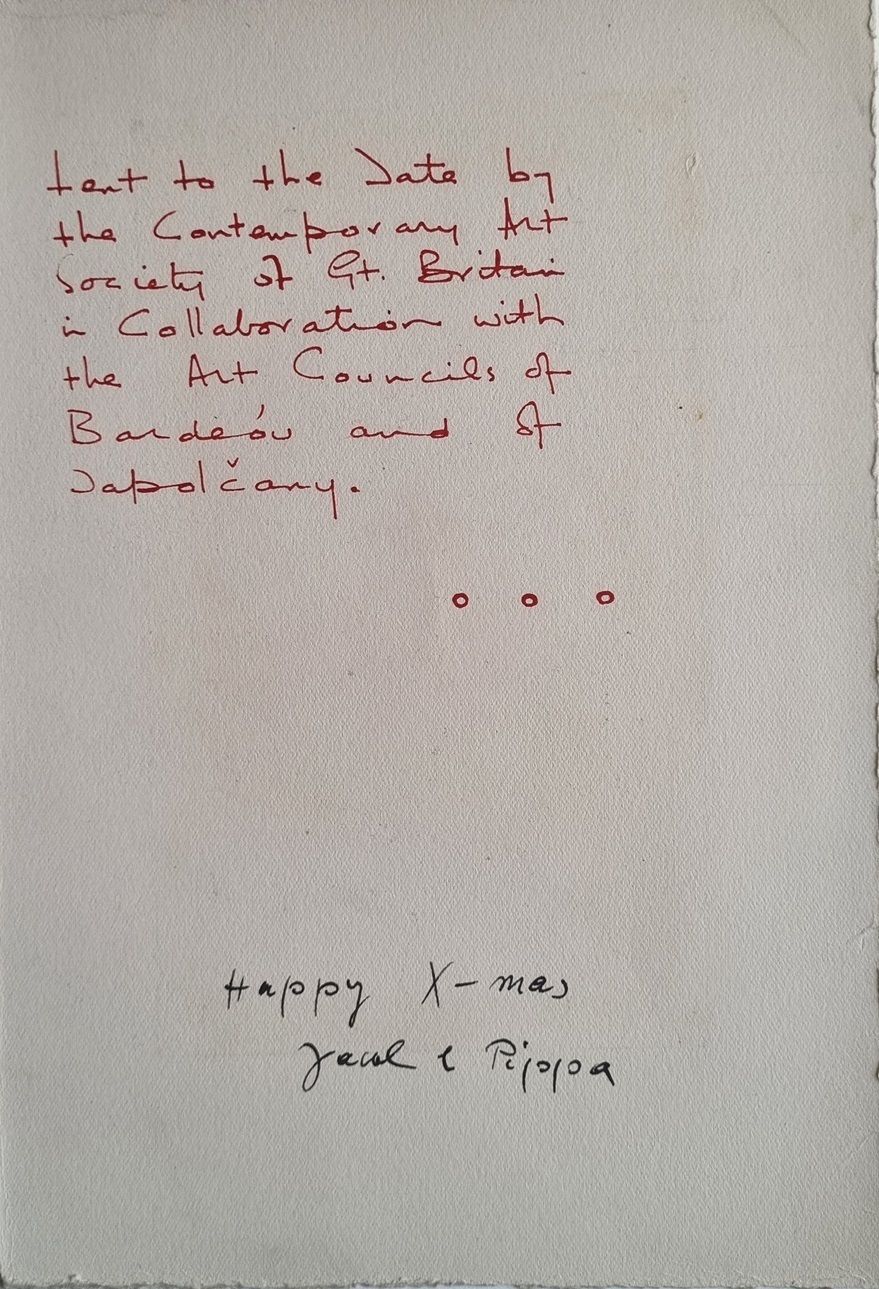 Lent to the Tate by
the Contemporary Art
Society of Gt. Britain
in Collaboration with
the Art Councils of
Bardeóv and of
Tapolčany.
Happy X-mas
Pippa